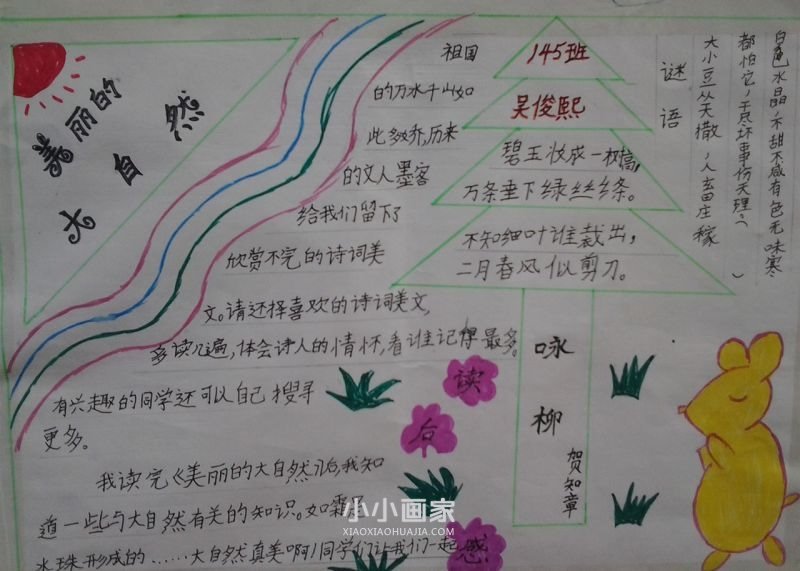 美丽的
大自然
祖国
的万水千山如
此多娇,历来
的文人墨客
给我们留下了
欣赏不完的诗词美
文。请还择喜欢的诗词美文,
多读几遍,体会诗人的情怀,看谁记得最多。
有兴趣的同学还可以自己搜寻
更多。
145班
吴俊熙
碧玉妆成一树高,
万条垂下绿丝绦。
不知细叶谁裁出,
二月春风似剪刀。
咏柳
贺知章
谜语
大小豆从天撒,人畜庄稼
都怕它,干尽坏事伤天理。( )
白色水晶,不甜不咸有色无味寒
读
后
感
我读完《美丽的大自然》后,我知
道一些与大自然有关的知识。如霜
水珠形成的……大自然真美啊!同学们让我们一起
小小画家
XIAOXIAOHUAJIA.COM